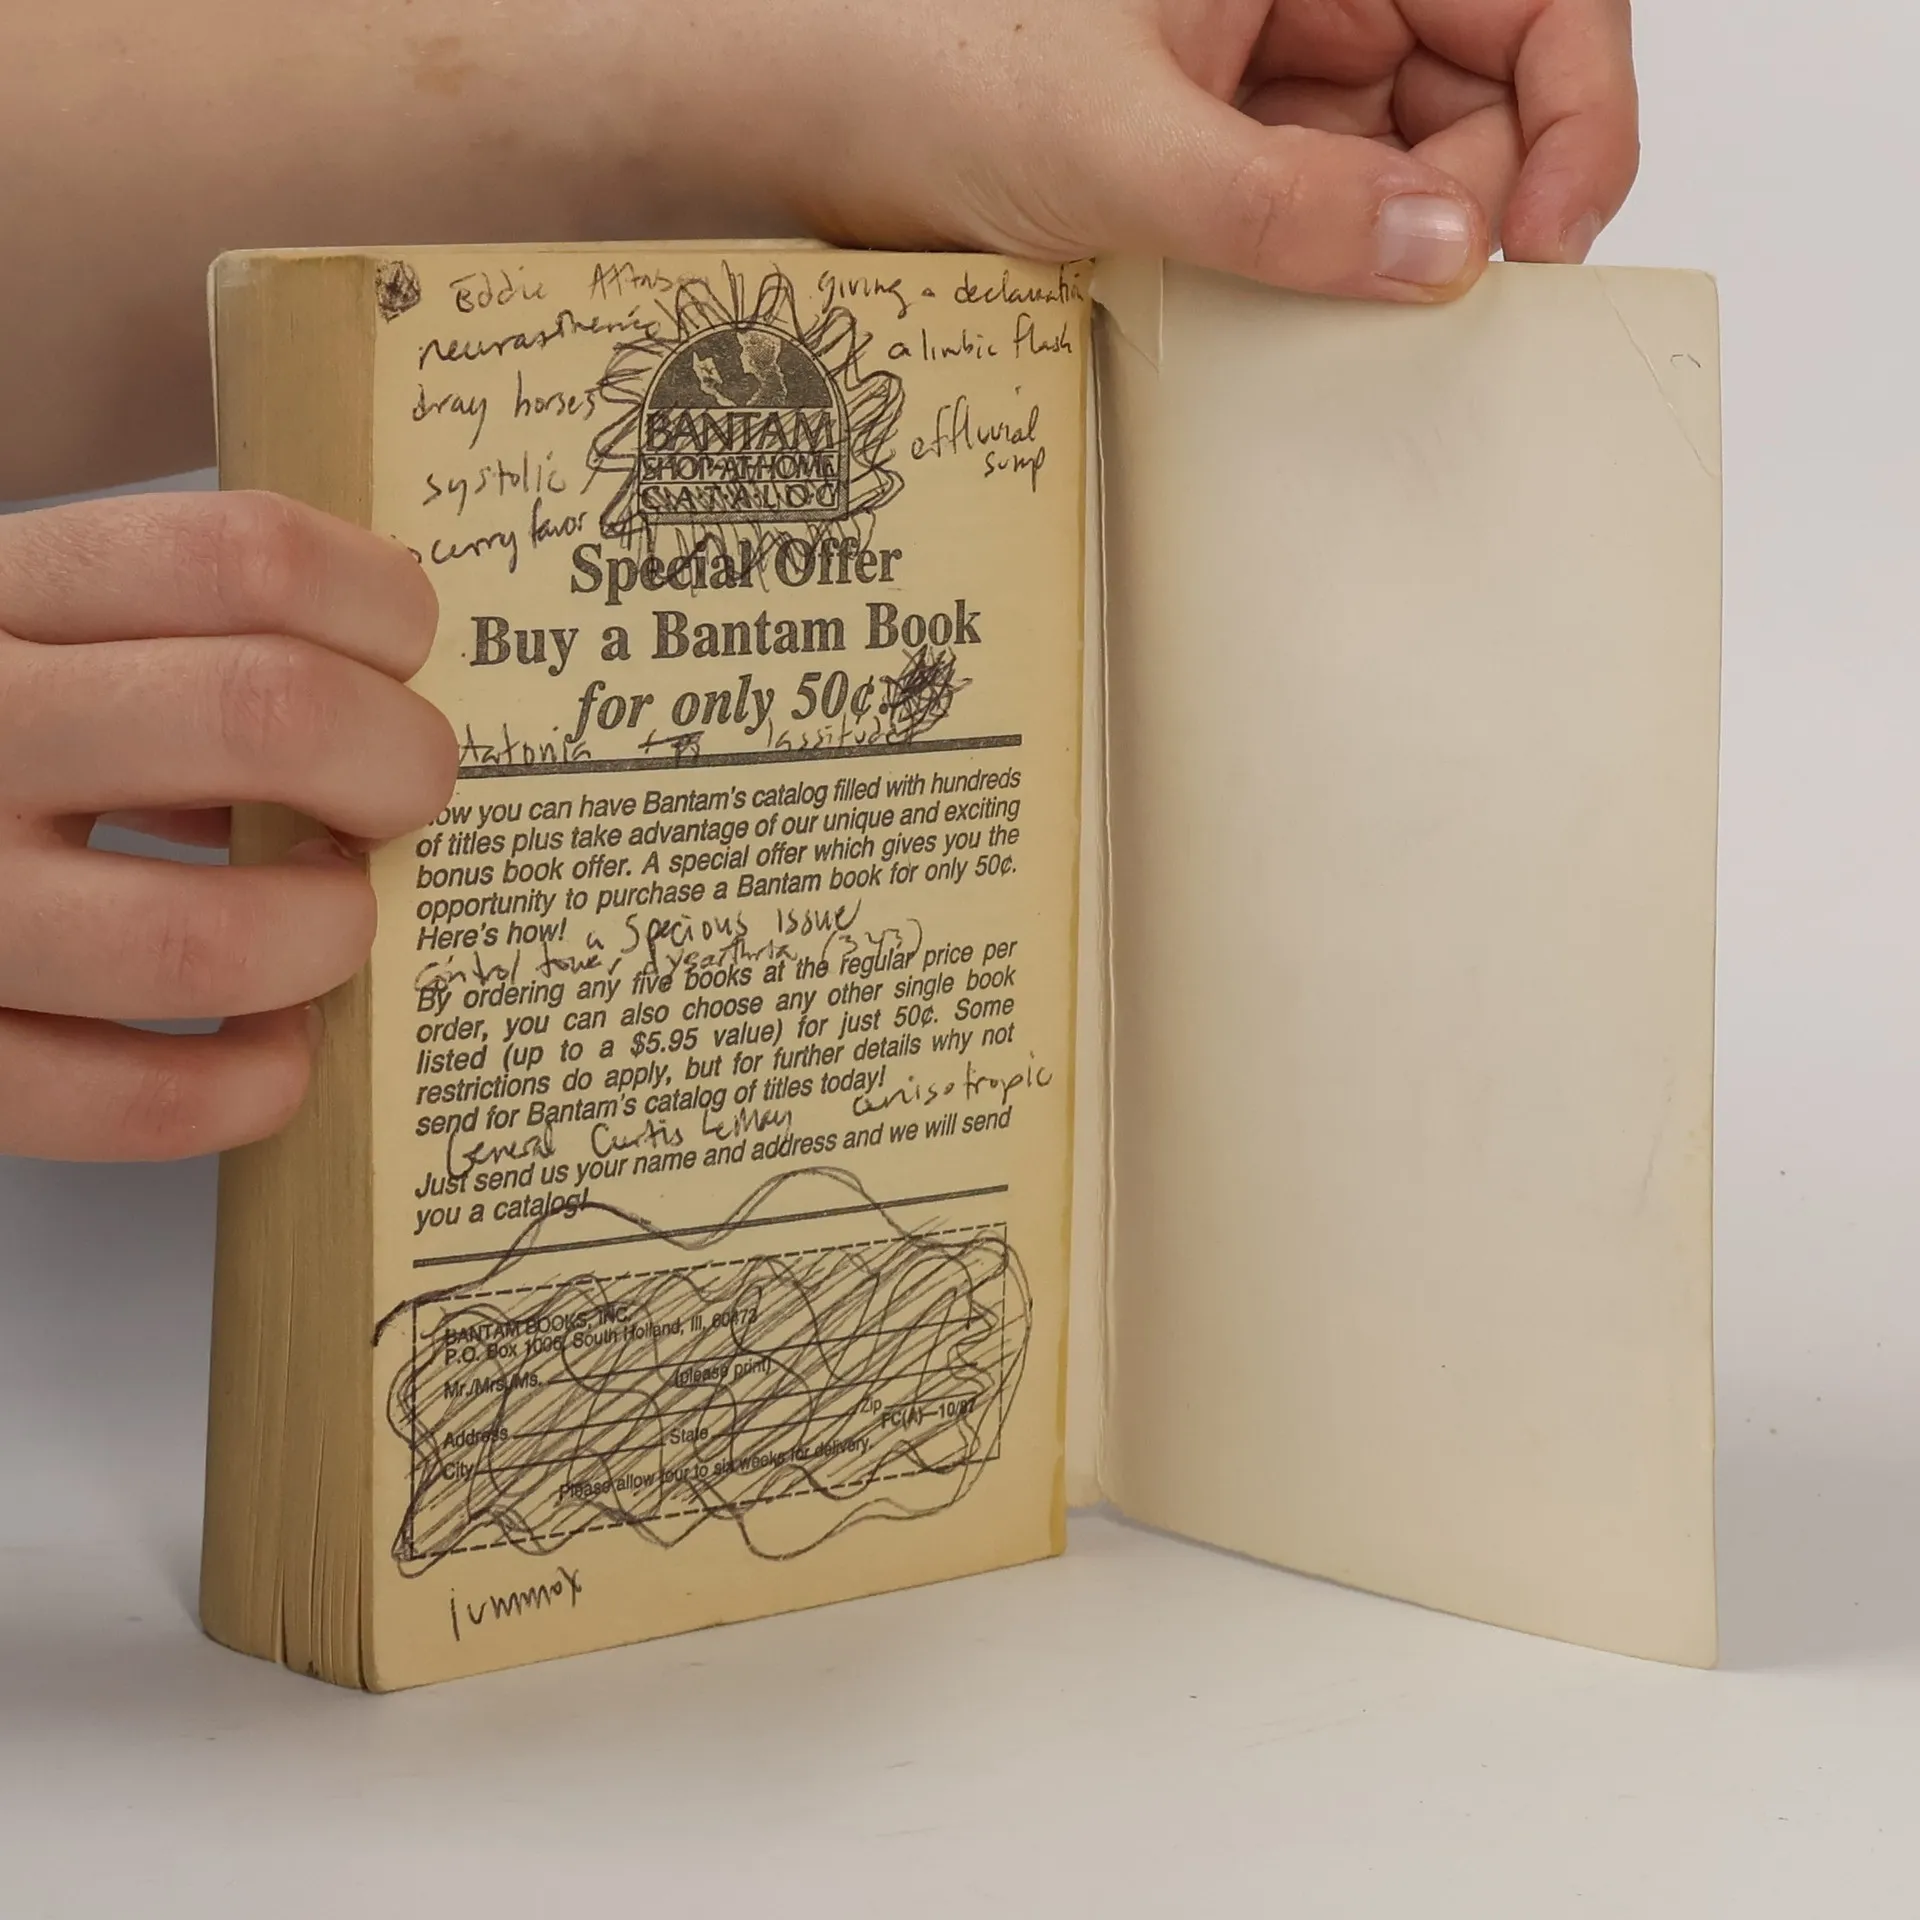 Eddie
giving a declaration
neurasthenic
a limbic flash
dray horses
effluvial
sump
systolic
curry favor
BANTAM
SHOP-AT-HOME
C·A·T·A·L·O·G
Special Offer
Buy a Bantam Book
for only 50¢.
lassitude
ow you can have Bantam's catalog filled with hundreds
of titles plus take advantage of our unique and exciting
bonus book offer. A special offer which gives you the
opportunity to purchase a Bantam book for only 50¢.
Here's how!
a specious issue
control tower (343)
By ordering any five books at the regular price per
order, you can also choose any other single book
listed (up to a $5.95 value) for just 50¢. Some
restrictions do apply, but for further details why not
send for Bantam's catalog of titles today!
anisotropic
General Curtis LeMay
Just send us your name and address and we will send
you a catalog!
BANTAM BOOKS, INC.
P.O. Box 1006, South Holland, Ill, 60473
Mr./Mrs./Ms.
(please print)
Address
City State Zip
FC(A)—10/87
Please allow four to six weeks for delivery.